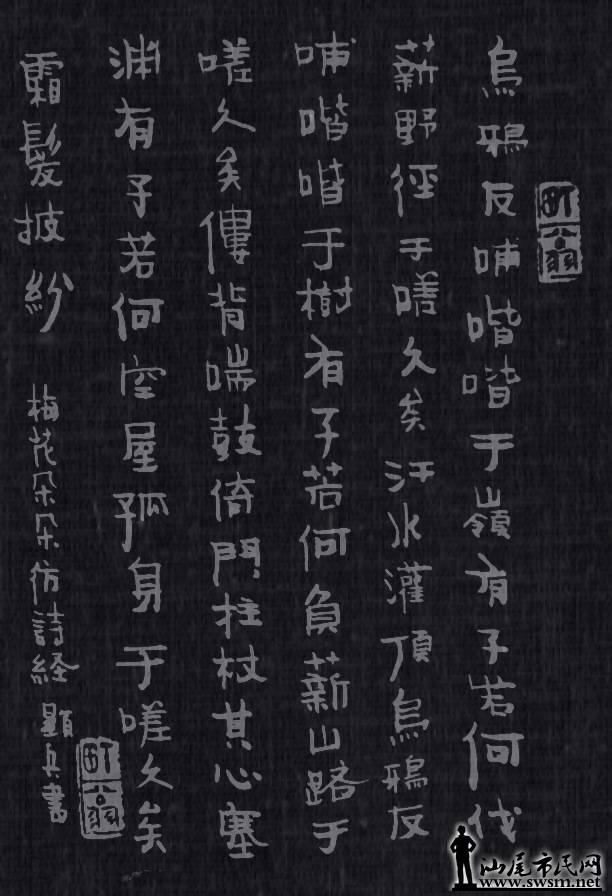 烏鴉反哺喈喈于嶺有子若何伐
薪野徑于嗟久矣汗水灌頂烏鴉反
哺喈喈于樹有子若何負薪山路于
嗟久矣僂背喘鼓倚門柱杖其心塞
淵有子若何空屋孤身于嗟久矣
霜髮披紛
梅花朵朵仿詩経 顯兵書
汕尾市民网
www.swsm.net